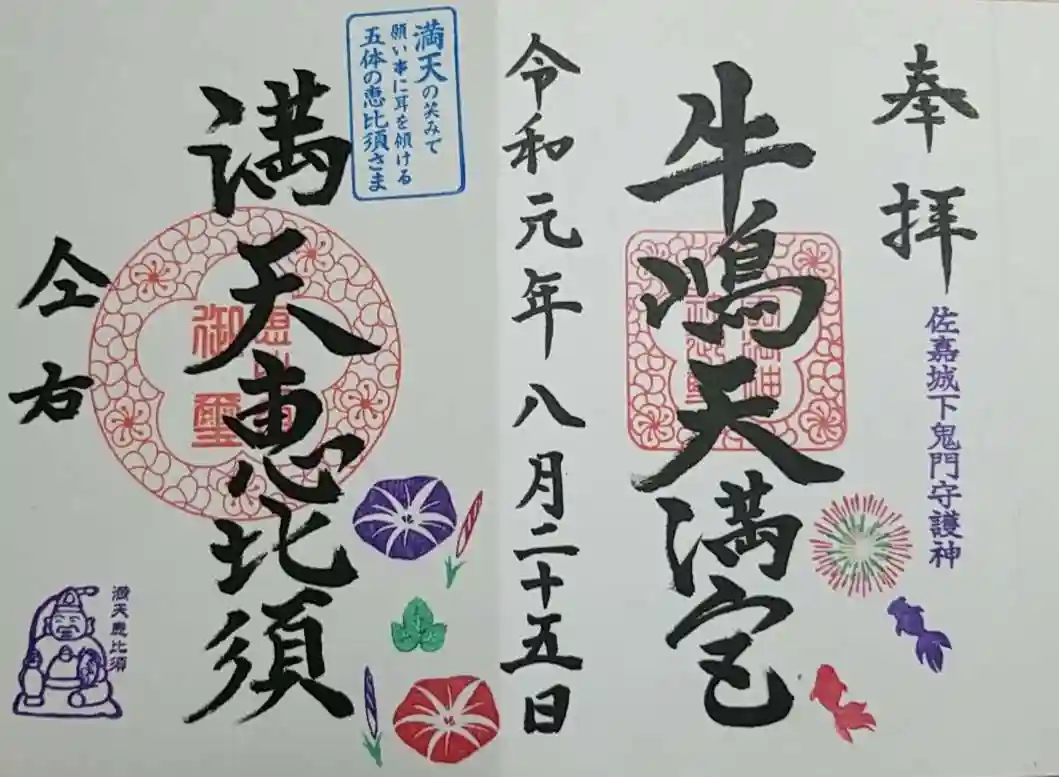 奉拝
佐嘉城下鬼門守護神
牛嶋天満宮
令和元年八月二十五日
満天の笑みで
願い事に耳を傾ける
五体の恵比須さま
満天恵比須
御璽
満天恵比須